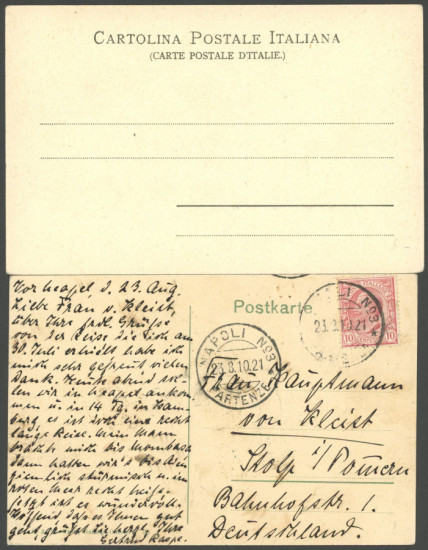 CARTOLINA POSTALE ITALIANA
(CARTE POSTALE D'ITALIE.)
Postkarte.
Vor Neapel d. 23. Aug.
Liebe Frau v. Kleist,
über Ihre frdl. Grüße
von der Reise die ich am
30. Juli erhielt habe ich
mich sehr gefreut vielen
Dank. Heute abend
wir in Neapel ankom-
men u. in 14 Tg. in Ham-
burg es ist doch eine recht
lange Reise. Mein Mann
brachte mich bis Mombasa
dann hatten wir's bis
ziemlich stürmisch u. im
roten Meer recht heiß.
jetzt ist es wundervoll.
Hoffend daß es Ihnen gut
geht grüßt Sie herzl. Ihre
Gertrud
NAPOLI No 3
23.8.10.21
PARTENZA
NAPOLI No 3
23.8.10.21
10 10
Frau Hauptmann
von Kleist
Stolp i/Pomern
Bahnhofstr. 1.
Deutschland.